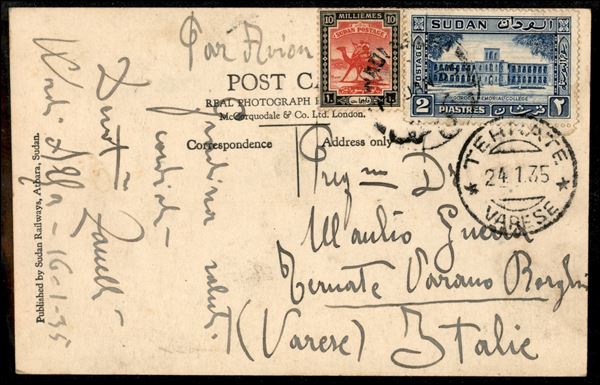 Par Avion
POST CA
REAL PHOTOGRAPH
McCorquodale & Co. Ltd. London.
Correspondence
Address only
10 MILLIEMES 10
SUDAN POSTAGE
SUDAN السودان
POSTAGE
GORDON MEMORIAL COLLEGE
2 PIASTRES قرشان ٢
TERNATE
24.1.35
VARESE
Preg mo D
Manlio Guerra
Ternate Varano Borghi
(Varese) Italie
cordiali
saluti
Wadi Halfa - 16-1-35
Published by Sudan Railways, Atbara, Sudan.